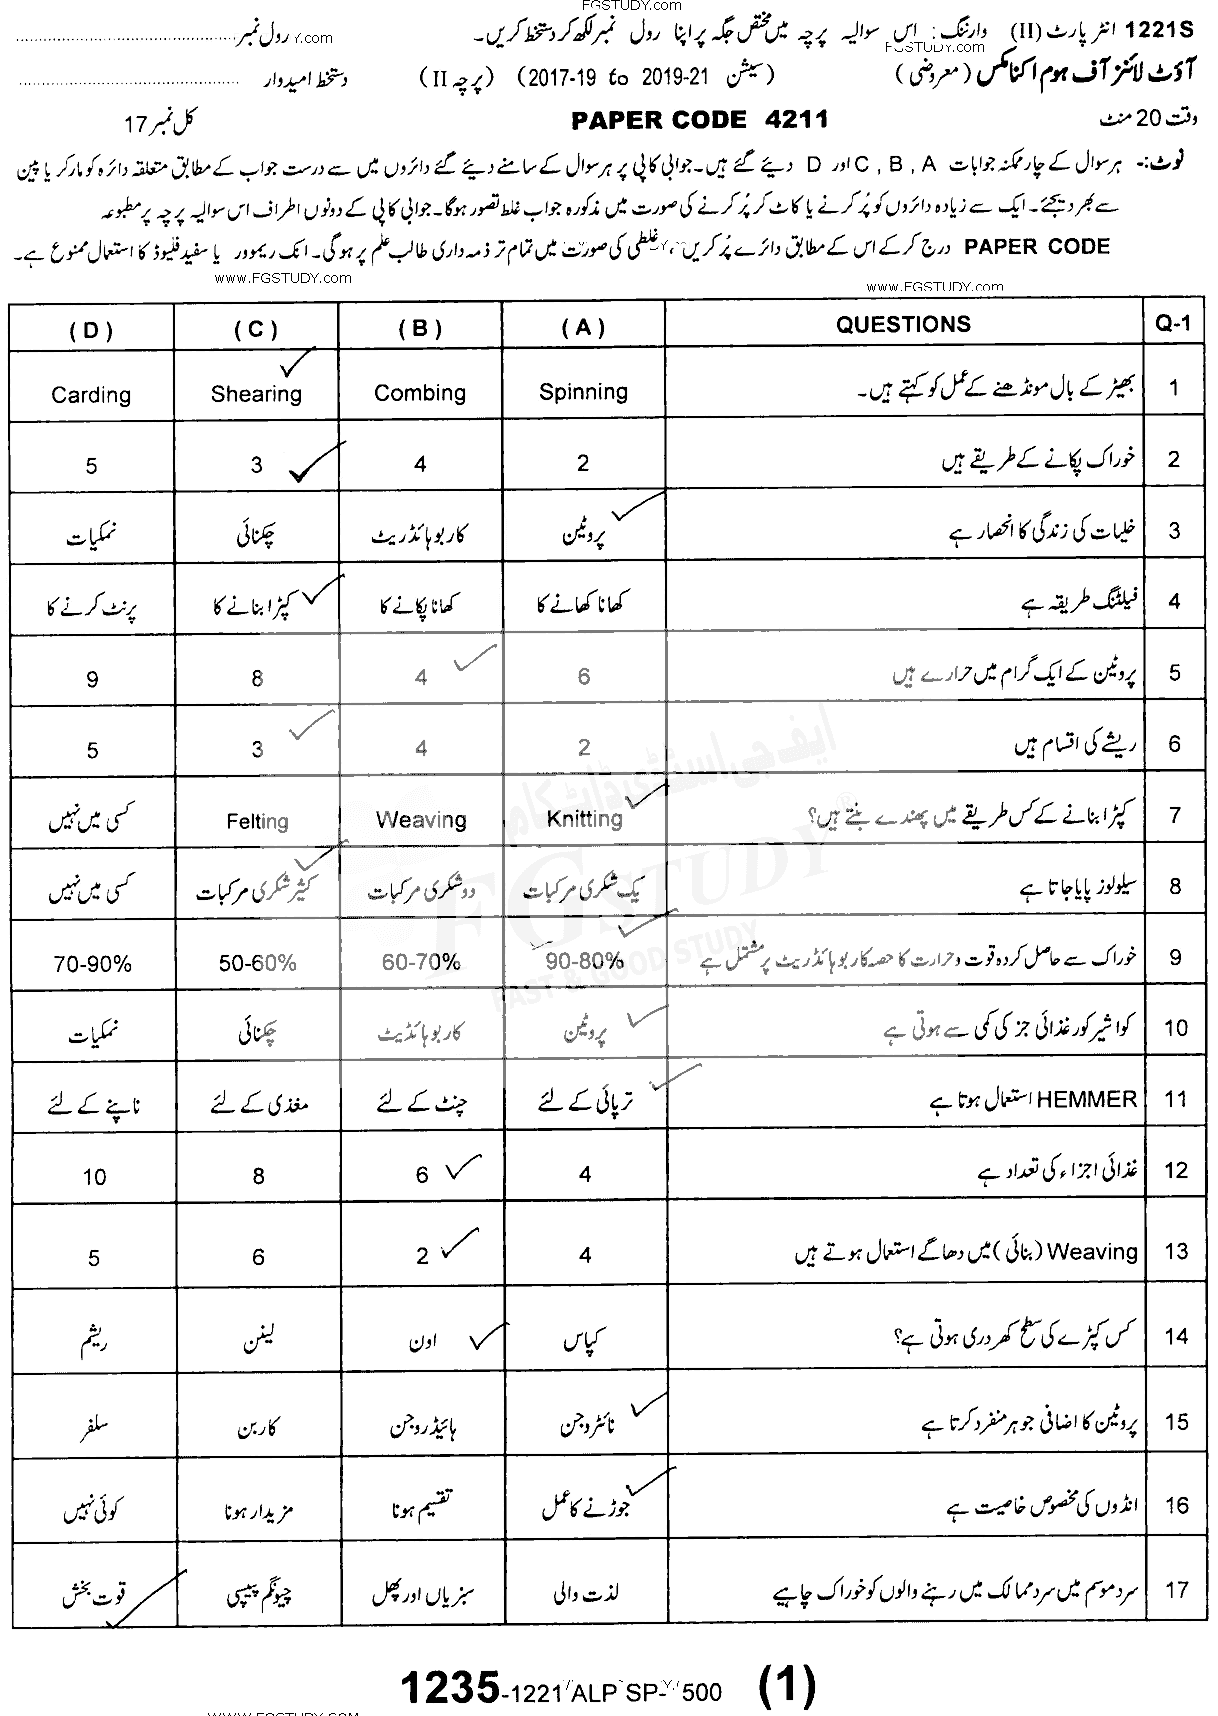 FGSTUDY.com
1221S انٹر پارٹ (II) وارننگ: اس سوالیہ پرچہ میں مختص جگہ پر اپنا رول نمبر لکھ کر دستخط کریں۔ رول نمبر
FGSTUDY.com
آؤٹ لائنز آف ہوم اکنامکس (معروضی) (سیشن 2019-21 to 2017-19) (پرچہ II) دستخط امیدوار
وقت 20 منٹ PAPER CODE 4211 کل نمبر 17
نوٹ:- ہر سوال کے چار ممکنہ جوابات A , B , C اور D دیئے گئے ہیں۔ جوابی کاپی پر ہر سوال کے سامنے دیئے گئے دائروں میں سے درست جواب کے مطابق متعلقہ دائرہ کو مارکر یا پین
سے بھر دیجئے۔ ایک سے زیادہ دائروں کو پُر کرنے یا کاٹ کر پُر کرنے کی صورت میں مذکورہ جواب غلط تصور ہوگا۔ جوابی کاپی کے دونوں اطراف اس سوالیہ پرچہ پر مطبوعہ
PAPER CODE درج کر کے اس کے مطابق دائرے پُر کریں، غلطی کی صورت میں تمام تر ذمہ داری طالب علم پر ہوگی۔ انک ریموور یا سفید فلیوڈ کا استعمال ممنوع ہے۔
www.FGSTUDY.com
www.FGSTUDY.com
Q-1 QUESTIONS (A) (B) (C) (D)
1 بھیڑ کے بال مونڈھنے کے عمل کو کہتے ہیں۔ Spinning Combing Shearing Carding
2 خوراک پکانے کے طریقے ہیں 2 4 3 5
3 خلیات کی زندگی کا انحصار ہے پروٹین کاربوہائڈریٹ چکنائی نمکیات
4 فیلٹنگ طریقہ ہے کھانا کھانے کا کھانا پکانے کا کپڑا بنانے کا پرنٹ کرنے کا
5 پروٹین کے ایک گرام میں حرارے ہیں 6 4 8 9
6 ریشے کی اقسام ہیں 2 4 3 5
7 کپڑا بنانے کے کس طریقے میں پھندے بنتے ہیں؟ Knitting Weaving Felting کسی میں نہیں
8 سیلولوز پایا جاتا ہے یک شکری مرکبات دو شکری مرکبات کثیر شکری مرکبات کسی میں نہیں
9 خوراک سے حاصل کردہ قوت و حرارت کا حصہ کاربوہائڈریٹ پر مشتمل ہے 90-80% 60-70% 50-60% 70-90%
10 کواشیرکور غذائی جز کی کمی سے ہوتی ہے پروٹین کاربوہائڈیٹ چکنائی نمکیات
11 HEMMER استعمال ہوتا ہے ترپائی کے لئے چنٹ کے لئے مغذی کے لئے ناپنے کے لئے
12 غذائی اجزاء کی تعداد ہے 4 6 8 10
13 Weaving (بنائی) میں دھاگے استعمال ہوتے ہیں 4 2 6 5
14 کس کپڑے کی سطح کھردری ہوتی ہے؟ کپاس اون لینن ریشم
15 پروٹین کا اضافی جوہر منفرد کرتا ہے نائٹروجن ہائیڈروجن کاربن سلفر
16 انڈوں کی مخصوص خاصیت ہے جوڑنے کا عمل تقسیم ہونا مزیدار ہونا کوئی نہیں
17 سرد موسم میں سرد ممالک میں رہنے والوں کو خوراک چاہیے لذت والی سبزیاں اور پھل چیونگم پیپسی قوت بخش
ایف جی اسٹڈی ڈاٹ کام
FGSTUDY
FAST & GOOD STUDY
1235-1221/ALP SP-500 (1)
www.FGSTUDY.COM